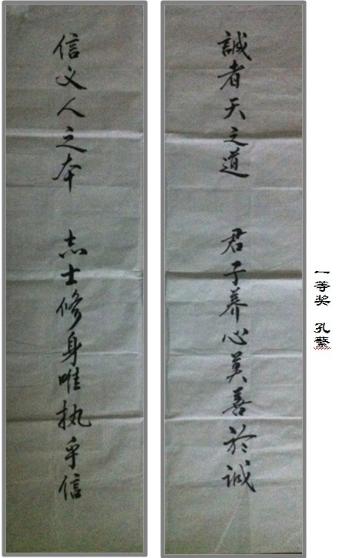 誠者天之道 君子养心莫善於诚
信义人之本 志士修身唯执乎信
一等奖 孔